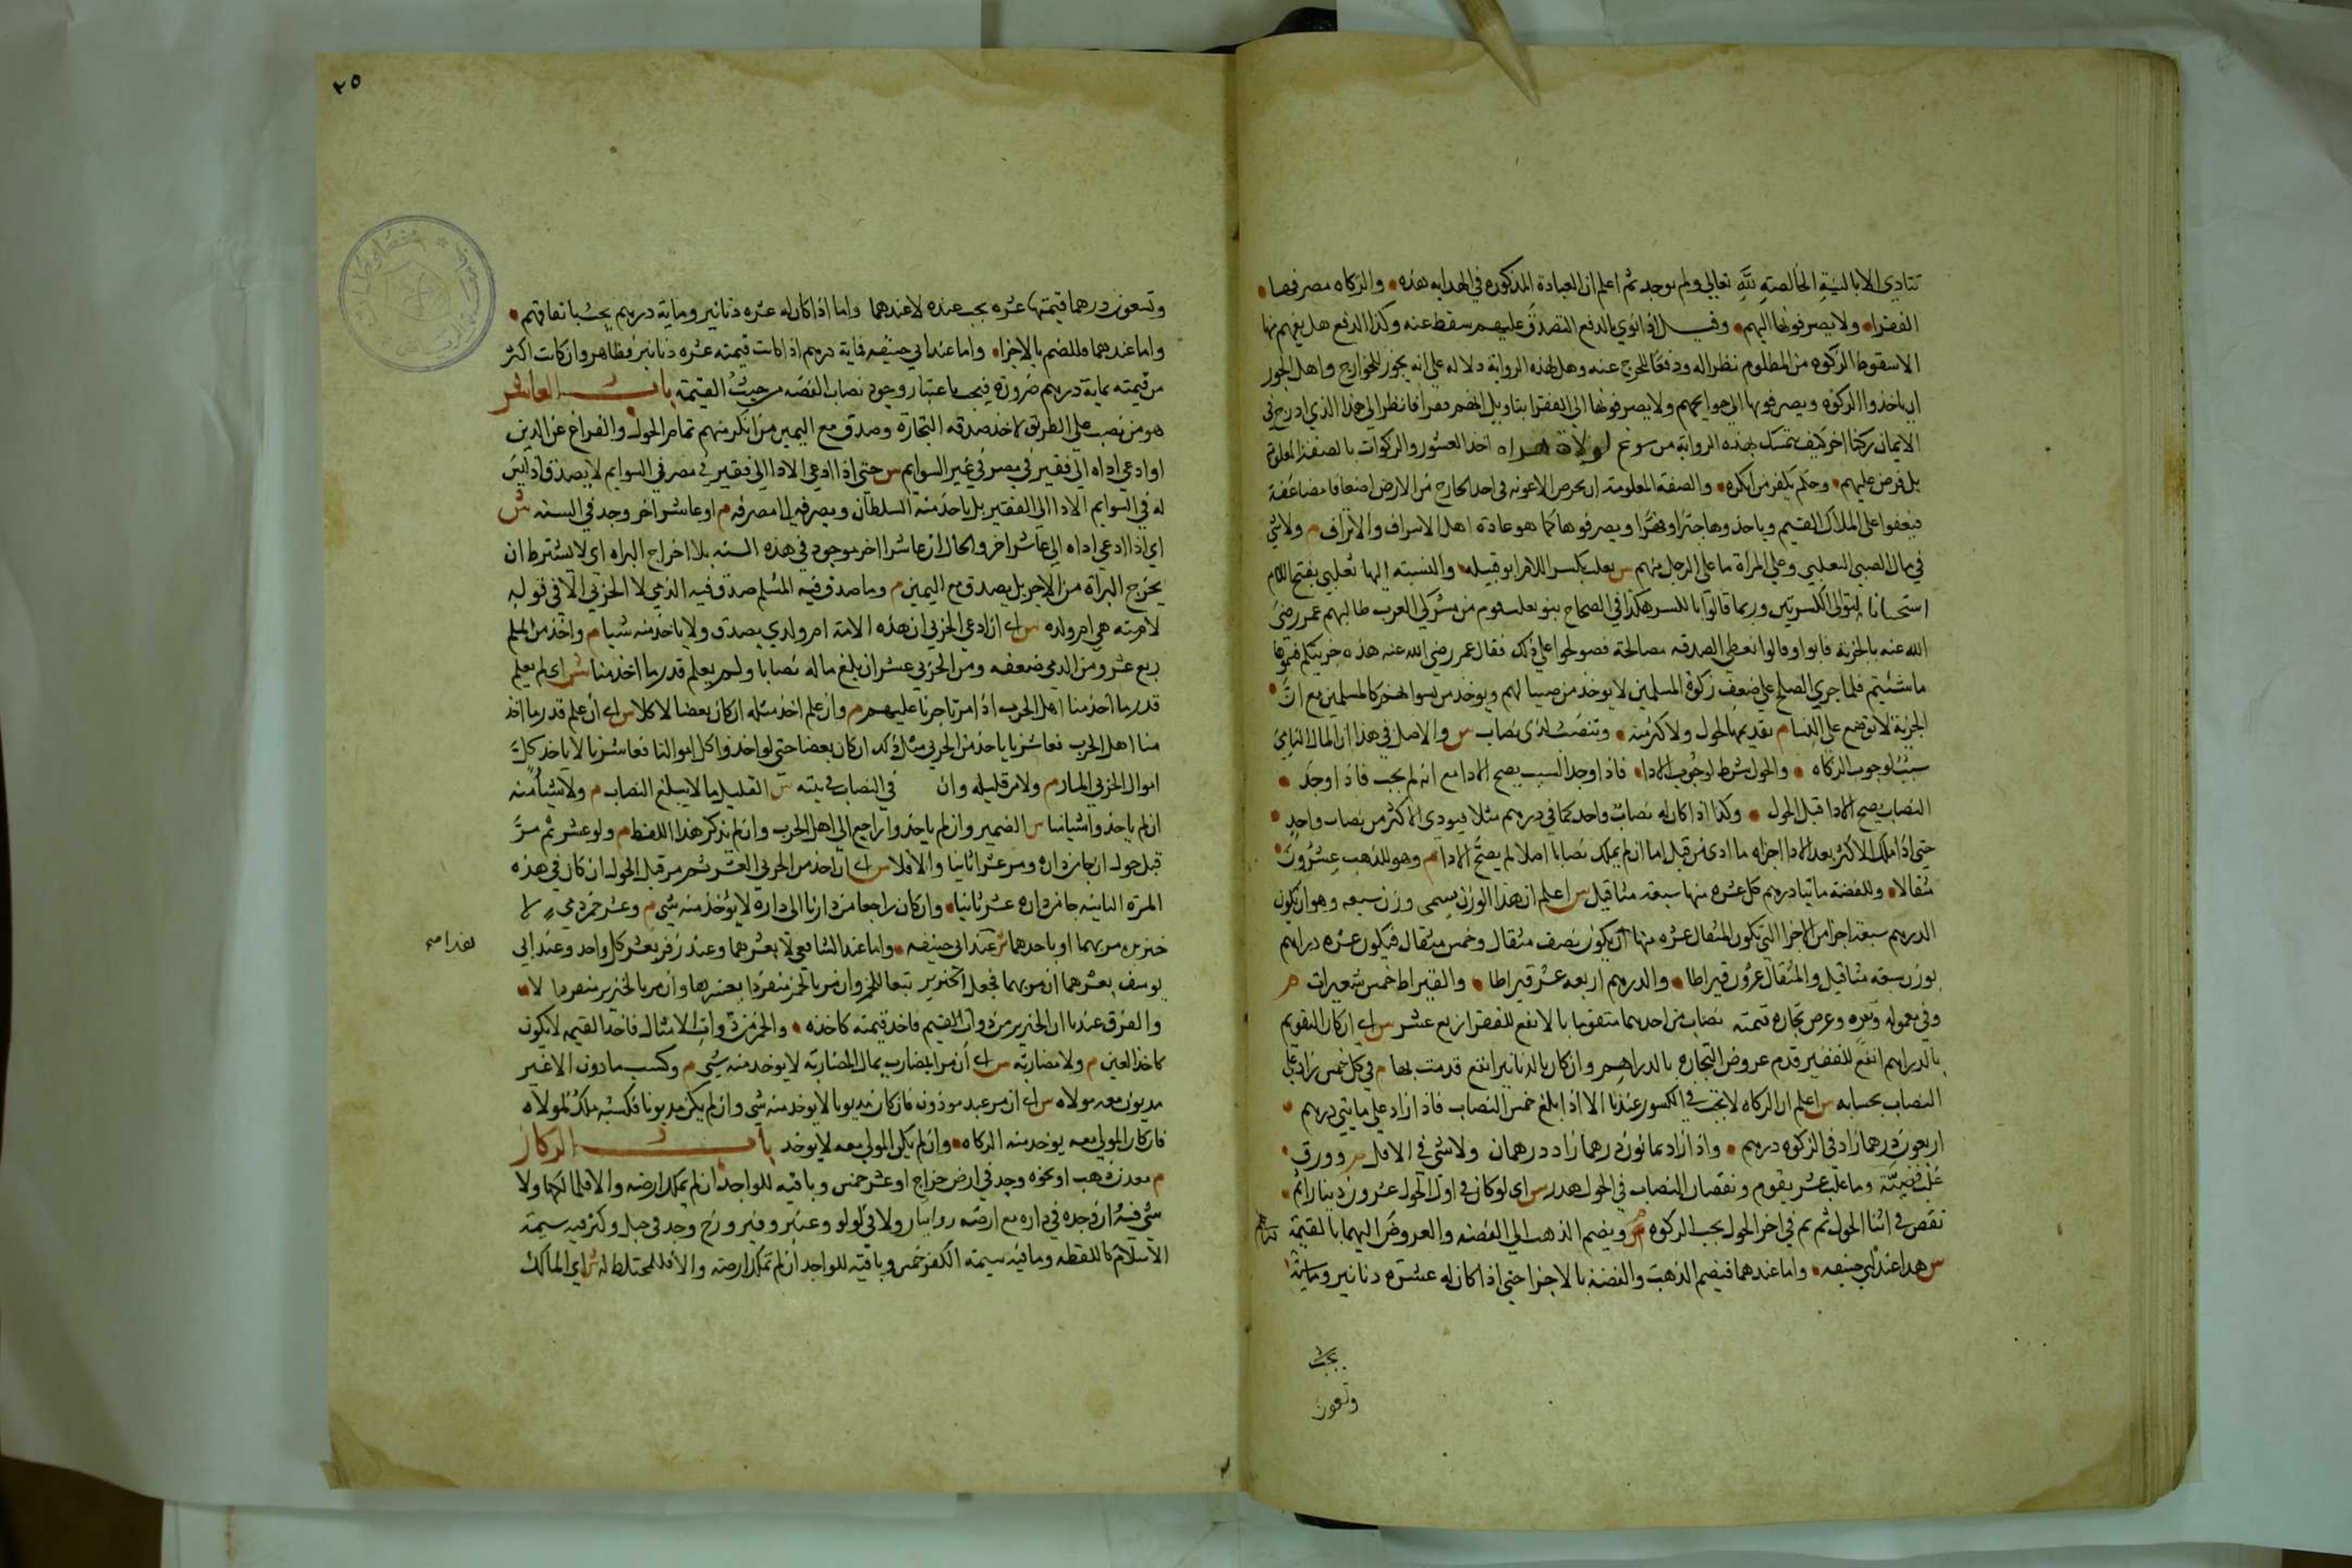 تتادي الا بالنية الخالصة لله تعالي ولم توجد ثم اعلم ان العبادة المذكورة في الهدايه هذه والزكاه مصرفها
الفقرا ولا يصرفونها اليهم وقيل اذا نوي بالدفع التصدق عليهم سقط عنه وكذا الدفع هل يفهم منها
الا سقوط الزكوه من المظلوم نظرا له ودفعا للحرج عنه وهل لهذه الرواية دلاله علي انه يجوز للخوارج واهل الجور
ان ياخذوا الزكوه ويصرفونها الي حوايجهم ولا يصرفونها الي الفقرا بتاويل انهم فقرا فانظر الي هذا الذي ادرج في
الايمان ركنا اخر كيف تمسك بهذه الرواية من سوغ لولاة هراه اخذ العشور والزكوات بالصفة المعلومة
بل فرض عليهم وحكم بكفر من انكره والصفة المعلومة ان يحرص الاعونه في اخذ الخارج من الارض اضعافا مضاعفة
فيعفوا علي الملاك القيم وياخذوها جبرا وقهرا ويصرفوها كما هو عادة اهل الاسراف والاتراف م ولا شي
في مال الصبي التغلبي وعلي المراة ما علي الرجل منهم س تغلب بكسر اللام ابو قبيله والنسبته اليها تغلبي بفتح اللام
استحاشا لتوالي الكسرتين وربما قالوا بالكسر هكذا في الصحاح بنو تغلب قوم من مشركي العرب طالبهم عمر رضي
الله عنه بالجزية فابوا وقالوا نعطي الصدقه مضاعفة فصولحوا علي ذلك فقال عمر رضي الله عنه هذه جزيتكم فسموها
ما شئتم فلما جري الصلح علي ضعف زكوة المسلمين لا يوخذ من صبيانهم ويوخذ من نسوانهم كالمسلمين مع ان
الجزية لا توضع علي النسا م تقديمها لحول ولاكثر منه ولنصب لذي نصاب س والاصل في هذا ان المال النامي
سبب لوجوب الزكاه والحول شرط لوجوب الادا فاذا وجد السبب يصح الادا مع انه لم يجب فاذا وجد
النصاب يصح الادا قبل الحول وكذا اذا كان له نصاب واحد كمايتي درهم مثلا فيودي الاكثر من نصاب واحد
حتي اذا ملك الاكثر بعد الادا اجزاه ما ادي من قبل اما ان لم يملك نصابا اصلا لم يصح الادا م وهو للذهب عشرون
مثقالا وللفضة مايتا درهم كل عشره منها سبعة مثاقيل س اعلم ان هذا الوزن يسمي وزن سبعه وهو ان يكون
الدرهم سبعة اجزا من الاجزا التي يكون المثقال عشره منها اي يكون نصف مثقال وخمس مثقال فيكون عشره دراهم
بوزن سبعة مثاقيل والمثقال عشرون قيراطا والدرهم اربعه عشر قيراطا والقيراط خمس شعيرات م
وفي معموله وتبره وعرض تجاره قيمته نصاب من احدهما متقوما بالانفع للفقرا ربع عشر س اي ان كان التقويم
بالدراهم انفع للفقير قدم عروض التجاره بالدراهم وان كان بالدنانير انفع قدمت بها م في كل خمس زاد علي
النصاب بحسابه س اعلم ان الزكاه لا تجب في الكسور عندنا الا اذا بلغ خمس النصاب فاذا زاد علي مايتي درهم
اربعون درهما زاد في الزكوه درهم واذا زاد ثمانون درهما زاد درهمان ولا شي في الاقل م وورق
غلب فضته وما غلب غشه يقوم ونقصان النصاب في الحول هدر س اي لو كان في اول الحول عشرون دينارا ثم
نقص في اثنا الحول ثم تم في اخر الحول يجب الزكوه م ويضم الذهب الي الفضه والعروض اليهما بالقيمة
س هذا عند ابي حنيفه واما عندهما فيضم الذهب والفضة بالاجزا حتي اذا كان له عشره دنانير وماية
يجب
وتسعون
٢٥
وتسعون درهما قيمتها عشره يجب عنده لا عندهما واما اذا كان له عشره دنانير وماية درهم يجب باتفاقهم
واما عندهما فللضم بالاجزا واما عند ابي حنيفه فماية درهم اذا كانت قيمته عشره دنانير فظاهر وان كانت اكثر
من قيمته بماية درهم ضرورة فيجب باعتبار وجود نصاب الفضه من حيث القيمة باب العاشر
هو من نصب علي الطريق لاخذ صدقه التجارة وصدق مع اليمين من انكر منهم تمام الحول والفراغ عن الدين
او ادعي اداه الي فقير في مصر في غير السوايم س حتي اذا ادعي الادا الي فقير في مصر في السوايم لا يصدق اذ ليس
له في السوايم الادا الي الفقير بل ياخذ منه السلطان ويصرفه الي مصرفه م او عاشر اخر وجد في السنه س
اي اذا ادعي اداه الي عاشر اخر والحال ان عاشرا اخر موجود في هذه السنه بلا اخراج البراه اي لا يشترط ان
يخرج البراة من الاخر بل يصدق مع اليمين م وما صدق فيه المسلم صدق فيه الذمي لا الحربي الا في قوله
لامته هي ام ولده س اي ان ادعي الحربي ان هذه الامة ام ولدي يصدق ولا ياخذ منه شيا م واخذ من المسلم
ربع عشر ومن الذمي ضعفه ومن الحربي عشر ان بلغ ماله نصابا ولم يعلم قدر ما اخذ منا س اي لم يعلم
قدر ما اخذ منا اهل الحرب اذا مر تاجرنا عليهم م وان علم اخذ مثله ان كان بعضا لا كلا س اي ان علم قدر ما اخذ
منا اهل الحرب فعاشرنا ياخذ من الحربي مثل ذلك ان كان بعضا حتي لو اخذوا كل اموالنا فعاشرنا لا ياخذ كل
اموال الحربي المار م ولا من قليله وان في النصاب في بيته س القليل ما لا يبلغ النصاب م ولا شيا منه
ان لم ياخذوا شيا منا س الضمير وان لم ياخذوا راجع الي اهل الحرب وان لم يذكر هذا اللفظ م ولو عشر ثم مر
قبل حول ان جا من داره عشر ثانيا والا فلا س اي ان اخذ من الحربي العشر ثم مر قبل الحول ان كان في هذه
المرة الثانيه جا من داره عشر ثانيا وان كان راجعا من دارنا الي داره لا يوخذ منه شي م وعشر خمر ذمي لا
خنزيره مر بهما او باحدهما س عند ابي حنيفه واما عند الشافعي لا يعشرهما وعند زفر يعشر كل واحد وعند ابي
يوسف يعشرهما ان مر بهما فجعل الخنزير تبعا للخمر وان مر بالخمر منفردا يعشرها وان مر بالخنزير منفردا لا
والفرق عندنا ان الخنزير من ذوات القيم فاخذ قيمته كاخذه والخمر من ذوات الامثال فاخذ القيمه لا يكون
كاخذ العين م ولا مضاربه س اي ان مر المضارب بمال المضاربة لا يوخذ منه شي م وكسب ماذون الا غير
مديون معه مولاه س اي ان مر عبد موذون فان كان مديونا لا يوخذ منه شي وان لم يكن مديونا فكسبه ملك لمولاه
فان كان المولي معه يوخذ منه الزكاه وان لم يكن المولي معه لا يوخذ باب الركاز
م معدن ذهب او نحوه وجد في ارض خراج او عشر خمس وباقيه للواجد ان لم يملك ارضه والا فلمالكها ولا
شي فيه ان وجده في داره مع ارضه روايتان ولا في لولو وعنبر وفيروزج وجد في جبل وكنز فيه سمة
الاسلام كاللقطه وما فيه سمة الكفر خمس وباقيه للواجد ان لم تملك ارضه والا فللمختط له س اي المالك